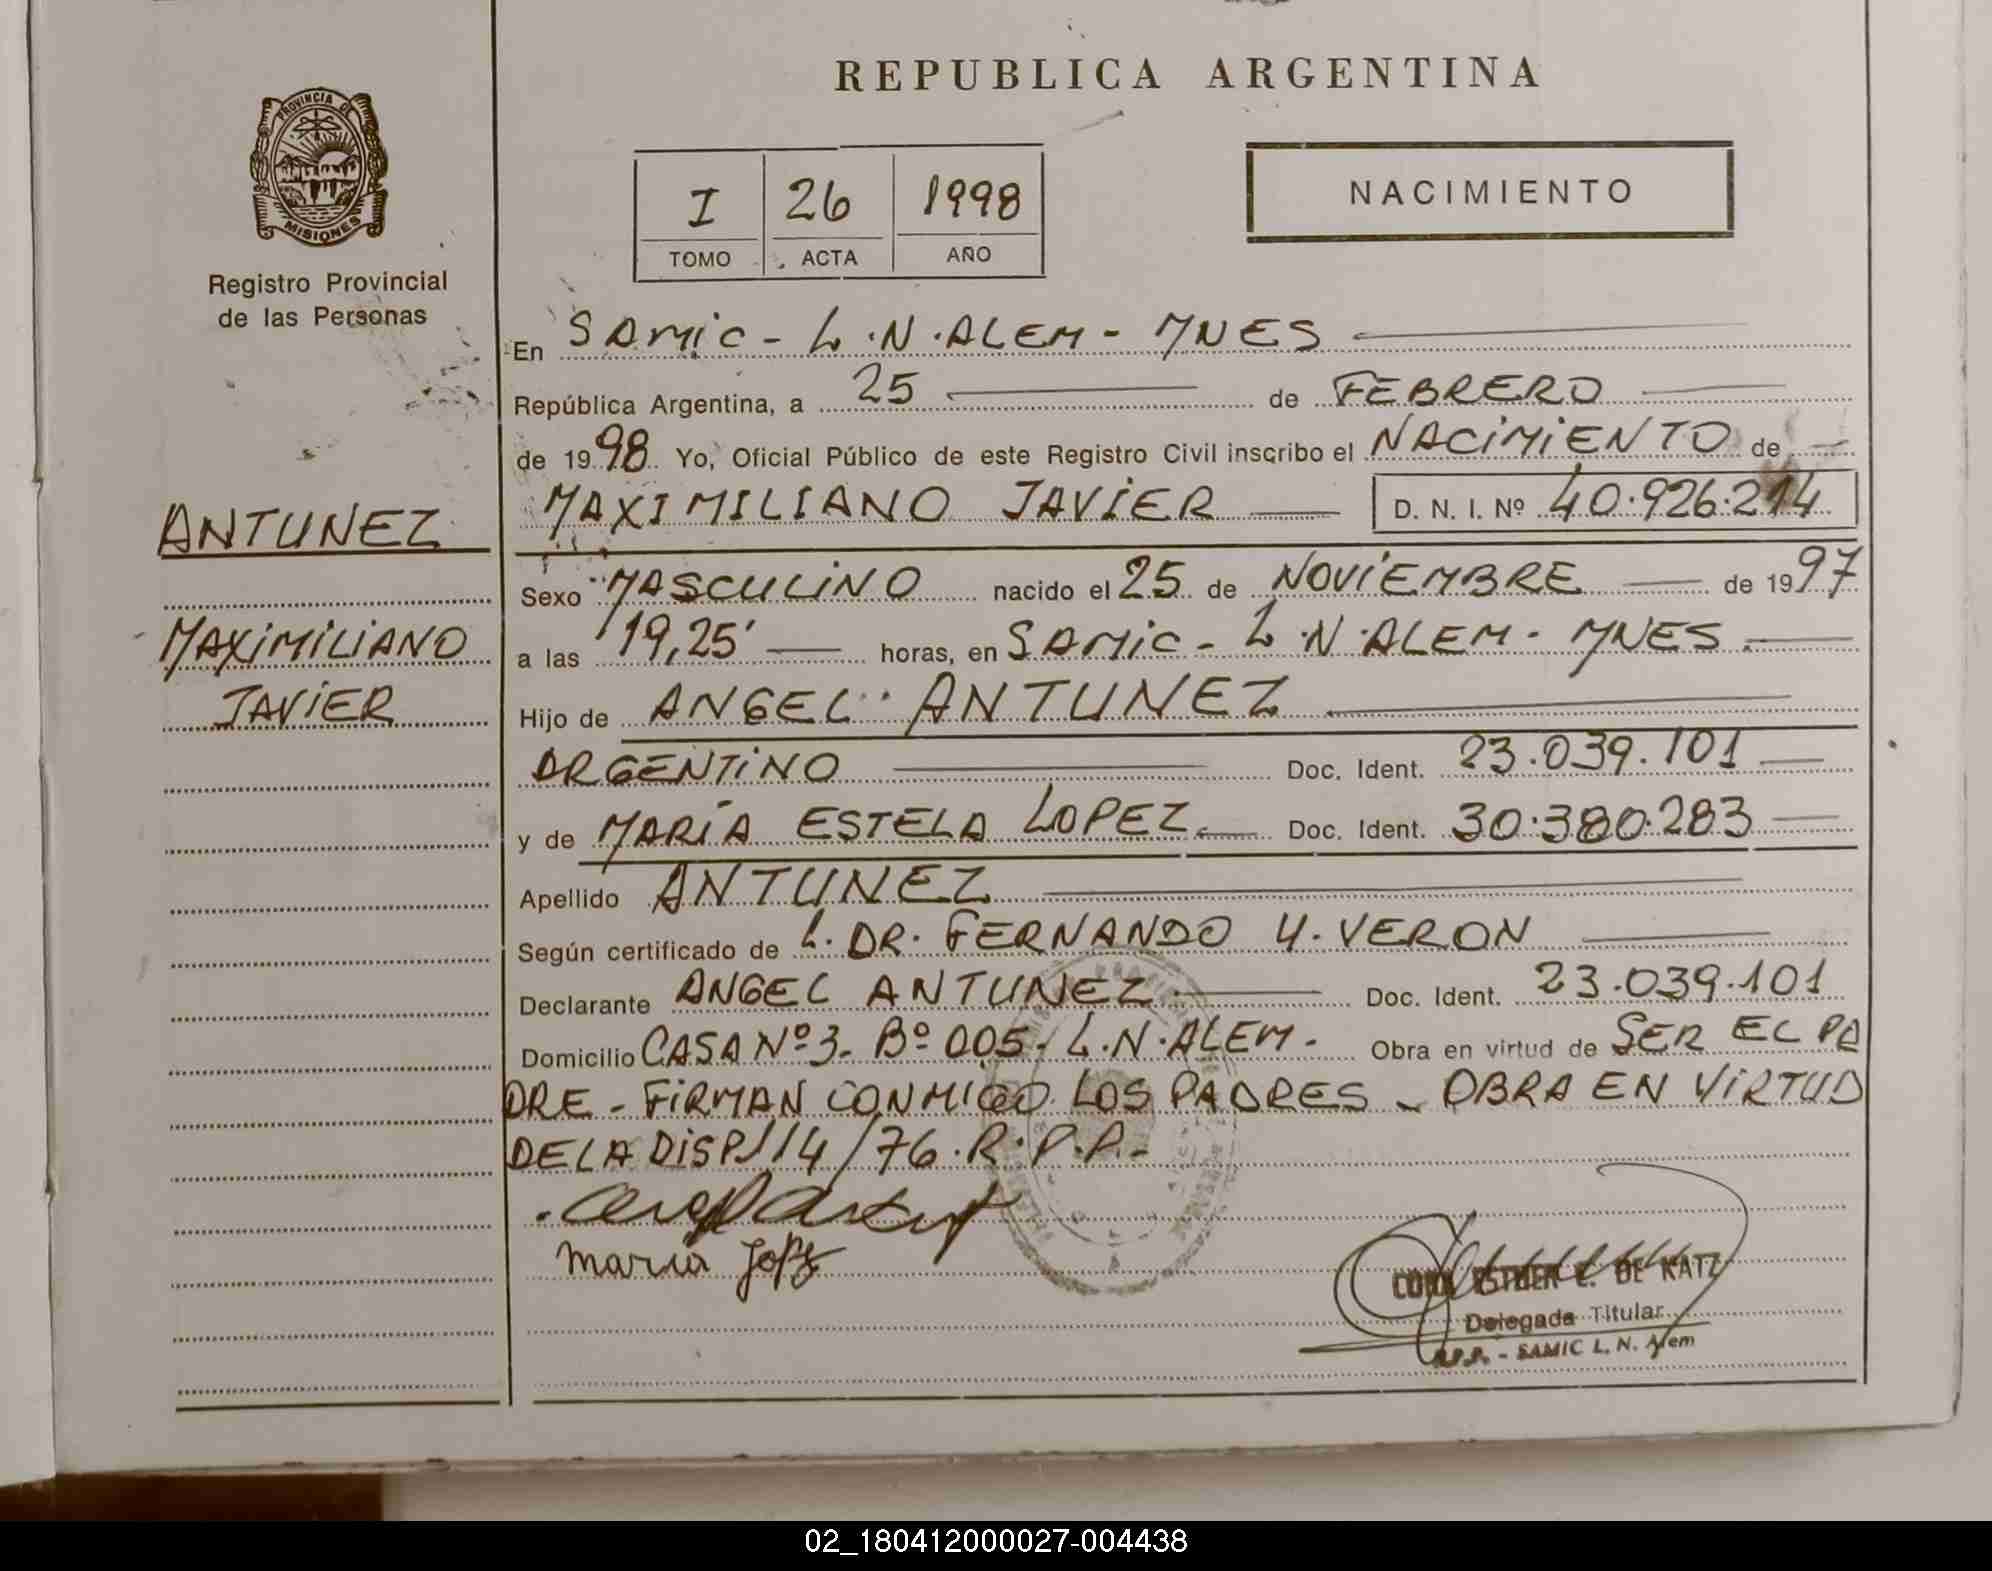 REPUBLICA ARGENTINA
PROVINCIA DE
MISIONES
Registro Provincial
de las Personas
I 26 1998
TOMO ACTA AÑO
NACIMIENTO
En SAMIC - L.N.ALEM - MNES
República Argentina, a 25 de FEBRERO
de 1998 Yo, Oficial Público de este Registro Civil inscribo el NACIMIENTO de
MAXIMILIANO JAVIER D. N. I. Nº 40.926.214
ANTUNEZ
MAXIMILIANO
JAVIER
Sexo MASCULINO nacido el 25 de NOVIEMBRE de 1997
a las 19,25' horas, en SAMIC - L.N.ALEM - MNES.
Hijo de ANGEL ANTUNEZ
ARGENTINO Doc. Ident. 23.039.101
y de MARÍA ESTELA LOPEZ Doc. Ident. 30.380.283
Apellido ANTUNEZ
Según certificado de L. DR. FERNANDO Y. VERON
Declarante ANGEL ANTUNEZ Doc. Ident. 23.039.101
Domicilio CASA Nº 3 - Bº 005 - L.N.ALEM - Obra en virtud de SER EL PA
DRE - FIRMAN CONMIGO LOS PADRES - OBRA EN VIRTUD
DE LA DISP. 114/76.R.P.P.-
maria
ESTHER E. DE KATZ
Delegada Titular
R.P.P. - SAMIC L. N. Alem
02_180412000027-004438